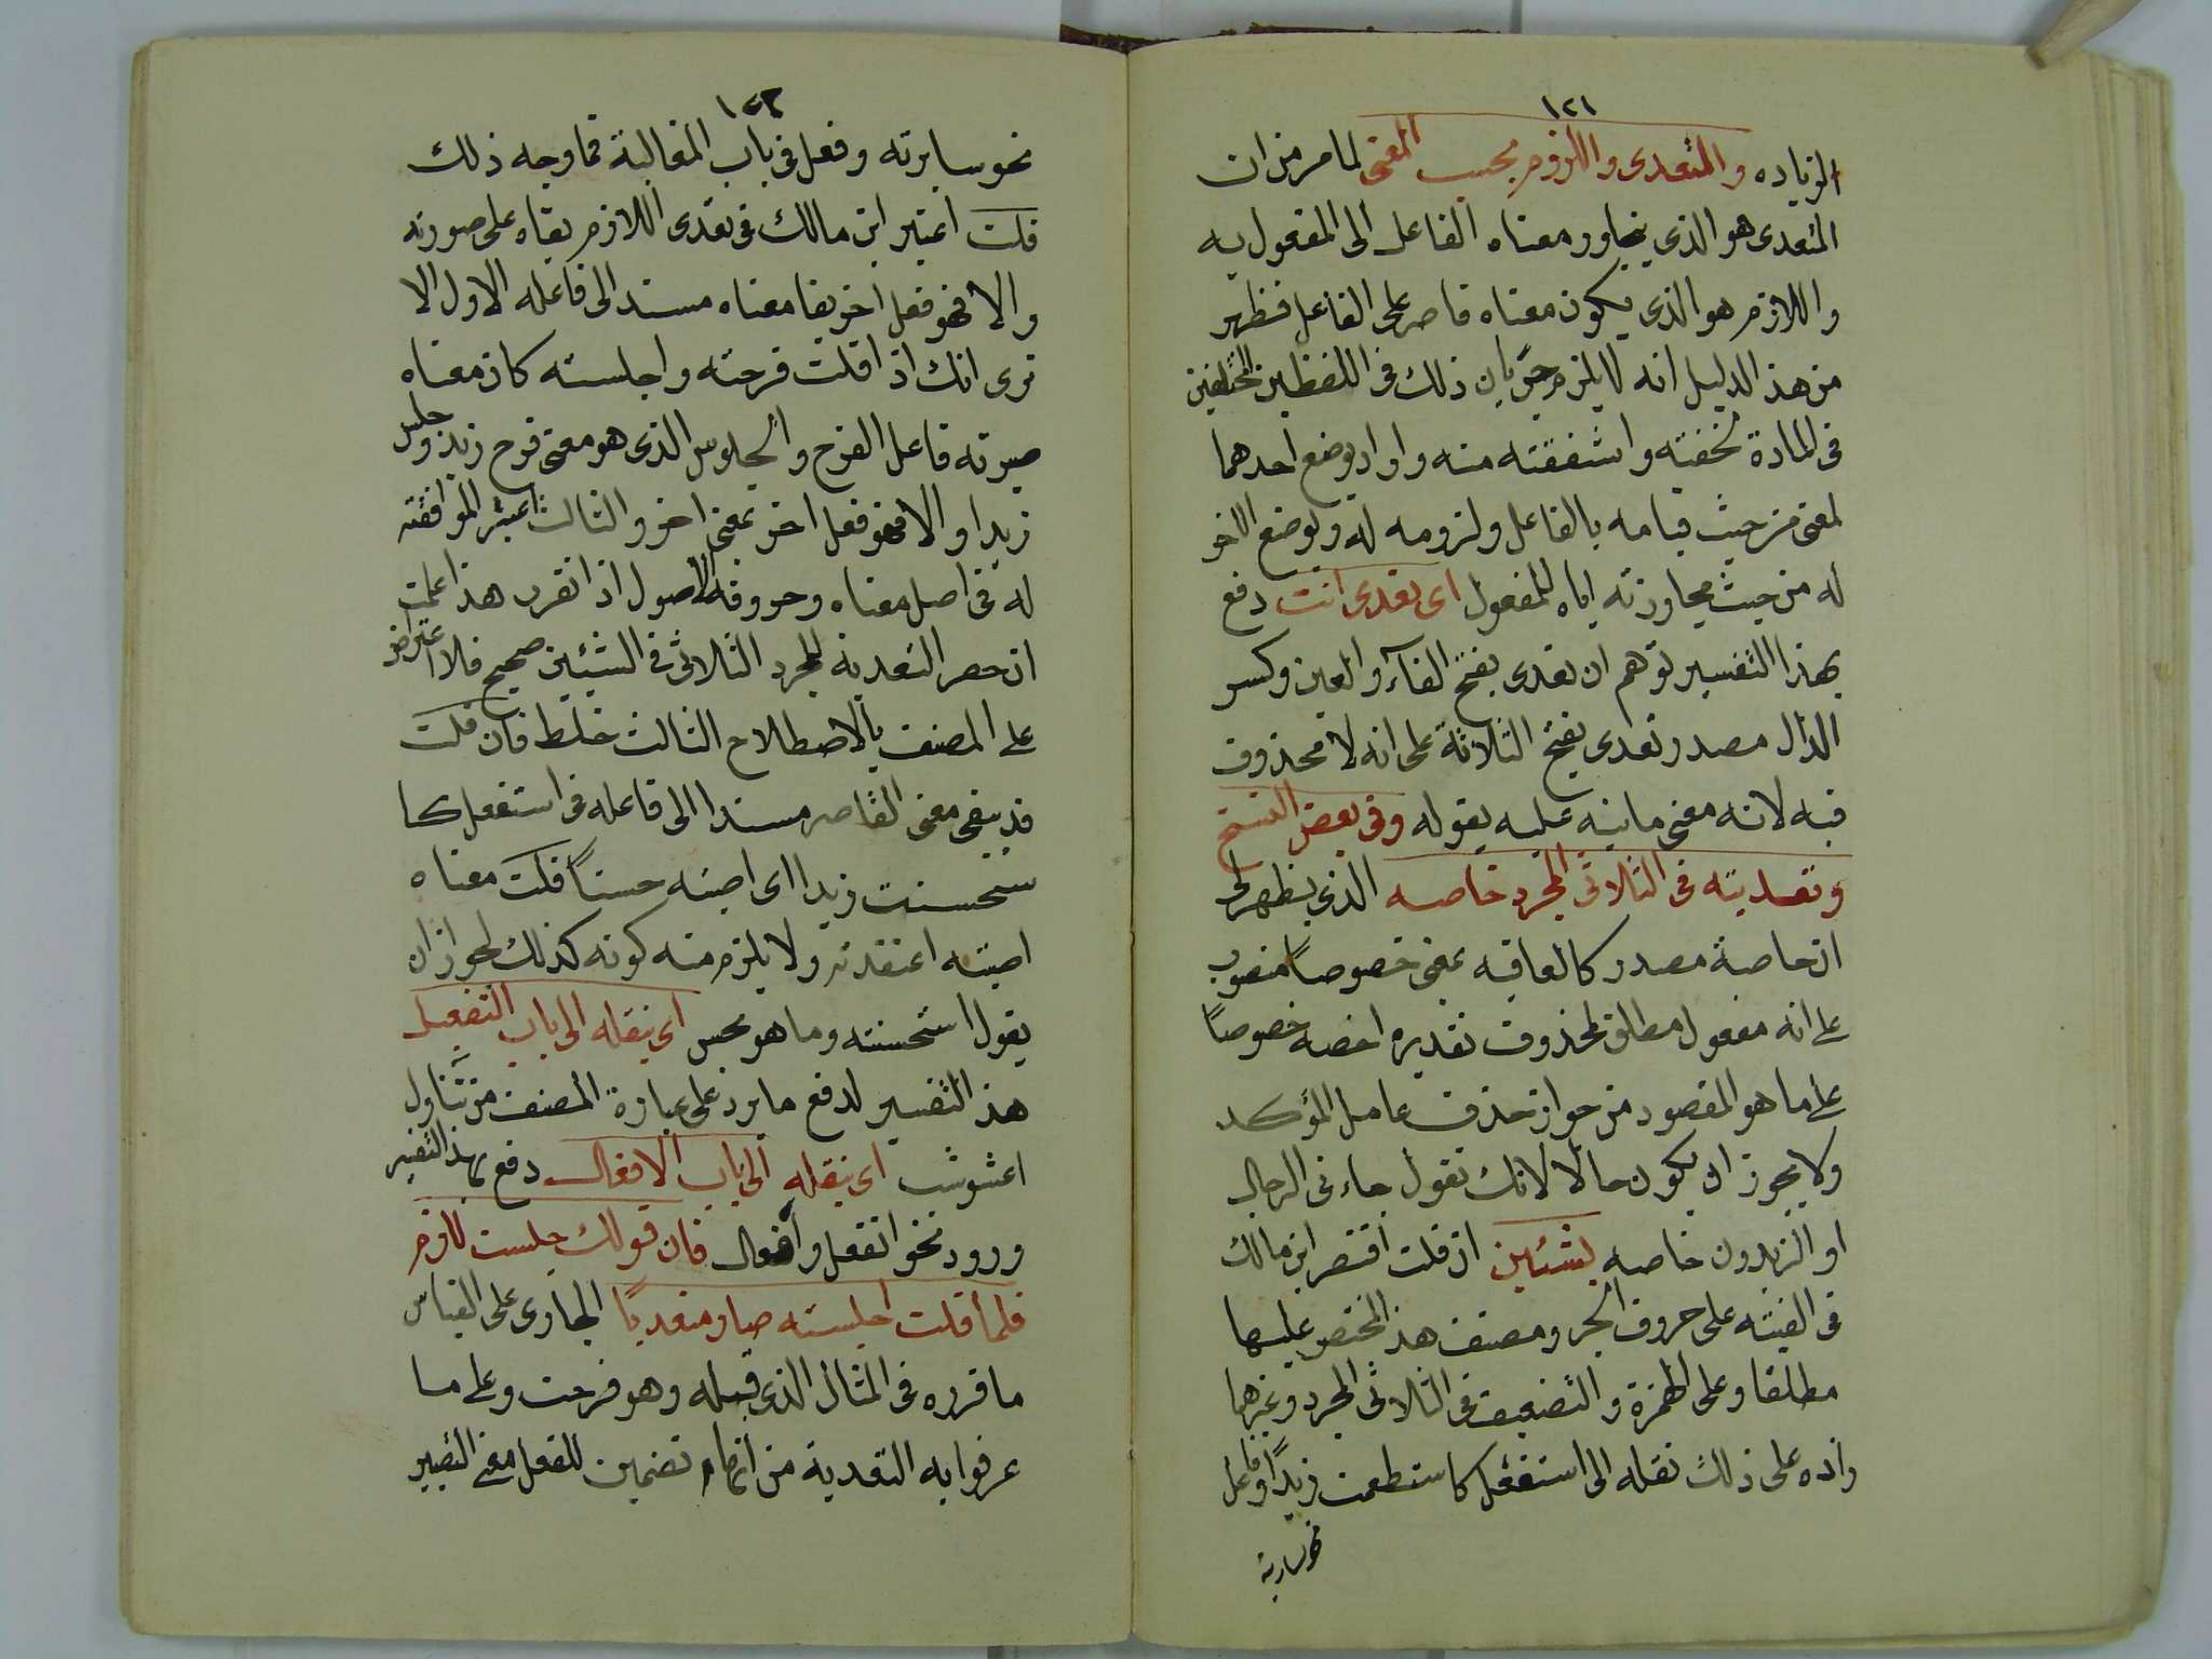 ١٢١
الزياده والمتعدى واللزوم بحسب المعنى لما مر من ان
المتعدى هو الذى يتجاوز معناه الفاعل الى المفعول به
واللازم هو الذى يكون معناه قاصر على الفاعل فظهر
من هذ الدليل انه لا يلزم جريان ذلك فى اللفظين المختلفين
فى المادة كخفته واشفقته منه واو اد يوضع احدهما
لمعنى من حيث قيامه بالفاعل ولزومه له ويوضع الاخر
له من حيث مجاوزته اياه للمفعول اى تعدى انت دفع
بهذا التفسير توهم ان تعدى بفتح الفآء والعين وكسر
الدال مصدر تعدى بفتح الثلاثة على انه لا محذوف
فيه لانه معنى ما نبه عليه بقوله وفى بعض النسخ
وتعديته فى الثلاثى المجرد خاصه الذى يظهر لى
ان خاصة مصدر كالعاقبه بمعنى خصوصاً منصوب
على انه مفعول مطلق لمحذوف تقديره اخصه خصوصاً
على ما هو المقصود من جواز حذف عامل المؤكد
ولا يجوز ان يكون حالا لانك تقول جاءنى الرجال
او الزيدون خاصه بشئين ان قلت اقتصر ابن مالك
فى الفيته على حروف الجر ومصنف هذ المختصر عليها
مطلقا وعلى الهمزة والتضعيف فى الثلاثى المجرد وغيرهما
زاده على ذلك نقله الى استفعل كاستطعمت زيداً وفاعل
نحو سايرته
١٤٢
نحو سايرته وفعل فى باب المغالبة فما وجه ذلك
قلت اعتبر ابن مالك فى تعدى اللازم بقاه على صورته
والا فهو فعل اخر بقا معناه مسند الى فاعله الاول الا
ترى انك اذا قلت فرحته واجلسته كان معناه
صيرته فاعل الفرح والجلوس الذى هو معنى فرح زيد وجلس
زيدا والا فهو فعل اخر بمعنى اخر والثالث اعتبر الموافقته
له فى اصل معناه وحروفه الاصول اذا تقرر هذا علمت
ان حصر التعدية للمجرد الثلاثى فى الشيئين صحيح فلا اعتراض
على المصنف بالاصطلاح الثالث خلط فان قلت
قد يبقى معنى القاصر مسندا الى فاعله فى استفعل كا
ستحسنت زيدا اى اصبته حسناً قلت معناه
اصبته اعتقدته ولا يلزم منه كونه كذلك لجواز ان
يقول استحسنته وما هو بحسن اى بنقله الى باب التفعيل
هذ التفسير لدفع ما يرد على عبارة المصنف من تناول
اعشوشب اى بنقله الى باب الافعال دفع بهذ التفسير
ورود نحو انفعل وافعال فان قولك جلست لازم
فلما قلت اجلسته صار متعدياً الجارى على القياس
ما قرره فى المثال الذى قبله وهو فرحت وعلى ما
عرفوا به التعدية من انها تضمين للفعل معنى التصيير